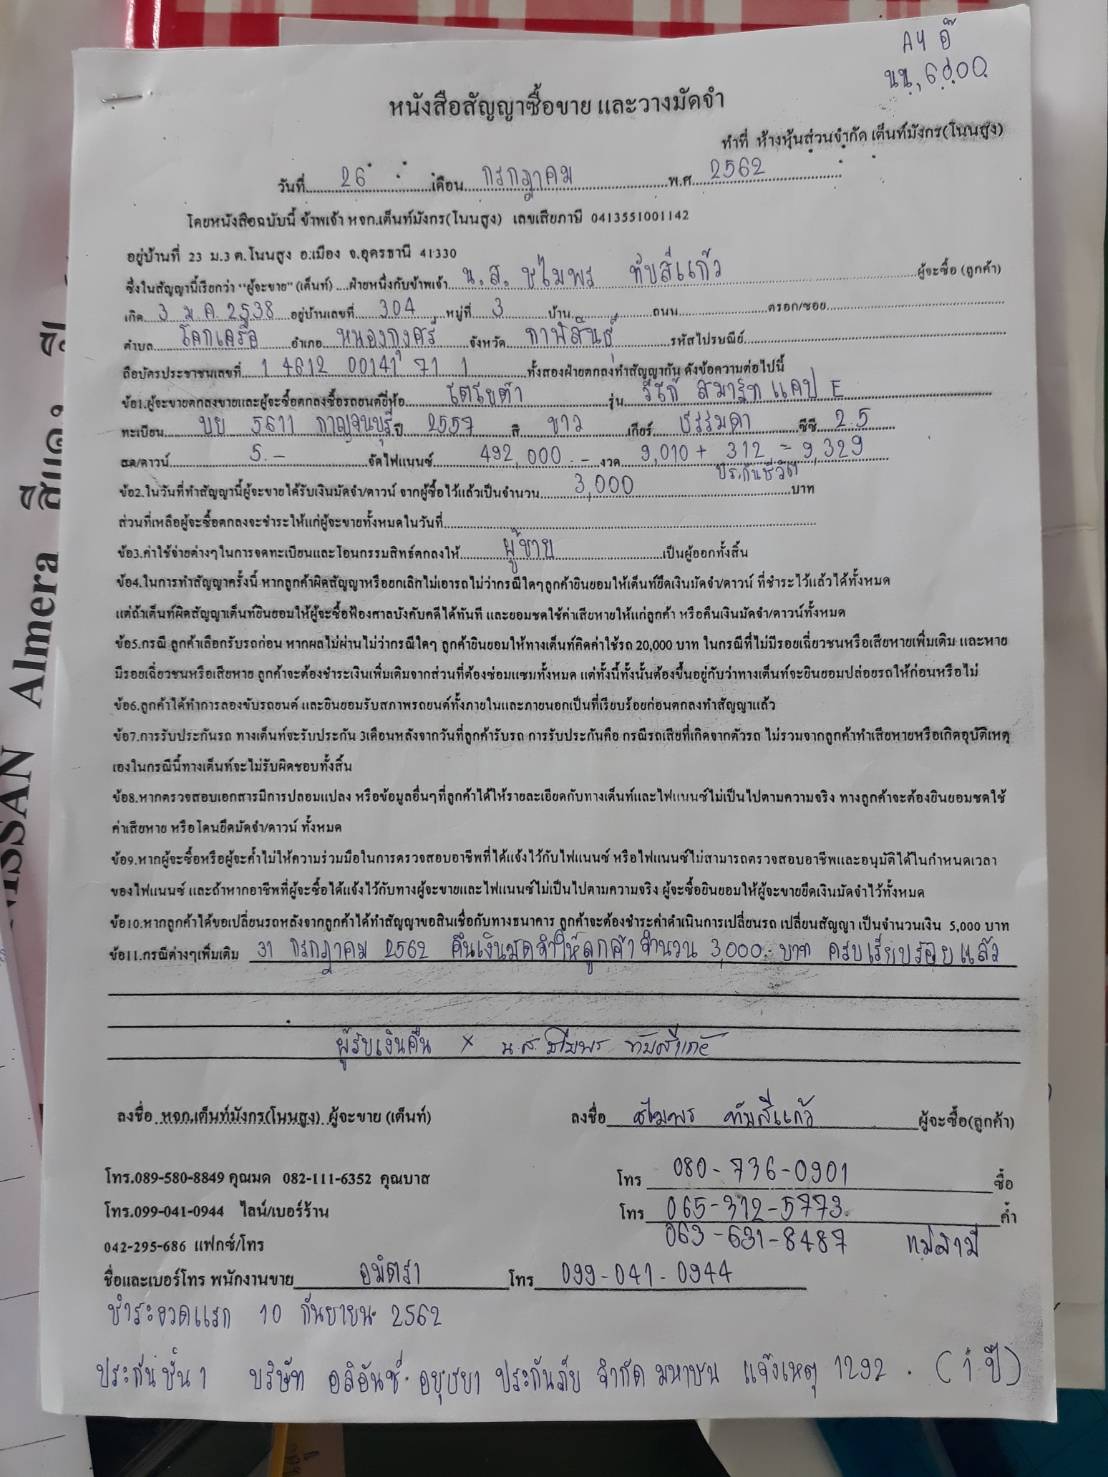 AY อ๊
นน. 6000
หนังสือสัญญาซื้อขาย และวางมัดจำ
ทำที่ ห้างหุ้นส่วนจำกัด เต็นท์มังกร(โนนสูง)
วันที่ 26 เดือน กรกฎาคม พ.ศ. 2562
โดยหนังสือฉบับนี้ ข้าพเจ้า หจก.เต็นท์มังกร(โนนสูง) เลขเสียภาษี 0413551001142
อยู่บ้านที่ 23 ม.3 ต.โนนสูง อ.เมือง จ.อุดรธานี 41330
ซึ่งในสัญญานี้เรียกว่า "ผู้จะขาย" (เต็นท์) ....ฝ่ายหนึ่งกับข้าพเจ้า น.ส. ชไมพร ทับสีแก้ว ผู้จะซื้อ (ลูกค้า)
เกิด 3 ม.ค. 2538 อยู่บ้านเลขที่ 304 หมู่ที่ 3 บ้าน ถนน ตรอก/ซอย
ตำบล โคกเครือ อำเภอ หนองกุงศรี จังหวัด กาฬสินธุ์ รหัสไปรษณีย์
ถือบัตรประชาชนเลขที่ 1 4612 00141 71 1 ทั้งสองฝ่ายตกลงทำสัญญากัน ดังข้อความต่อไปนี้
ข้อ1.ผู้จะขายตกลงขายและผู้จะซื้อตกลงซื้อรถยนต์ยี่ห้อ โตโยต้า รุ่น วีโก้ สมาร์ท แคป E
ทะเบียน บย 5611 กาญจนบุรี ปี 2557 สี ขาว เกียร์ ธรรมดา ซีซี 2.5
สด/ดาวน์ 5.- จัดไฟแนนซ์ 492,000.- งวด 9,010 + 312 = 9,329
ประกันชีวิต
ข้อ2.ในวันที่ทำสัญญานี้ผู้จะขายได้รับเงินมัดจำ/ดาวน์ จากผู้ซื้อไว้แล้วเป็นจำนวน 3,000 บาท
ส่วนที่เหลือผู้จะซื้อตกลงจะชำระให้แก่ผู้จะขายทั้งหมดในวันที่
ข้อ3.ค่าใช้จ่ายต่างๆในการจดทะเบียนและโอนกรรมสิทธิ์ตกลงให้ ผู้ขาย เป็นผู้ออกทั้งสิ้น
ข้อ4.ในการทำสัญญาครั้งนี้ หากลูกค้าผิดสัญญาหรือยกเลิกไม่เอารถไม่ว่ากรณีใดๆลูกค้ายินยอมให้เต็นท์ยึดเงินมัดจำ/ดาวน์ ที่ชำระไว้แล้วได้ทั้งหมด
แต่ถ้าเต็นท์ผิดสัญญาเต็นท์ยินยอมให้ผู้จะซื้อฟ้องศาลบังคับคดีได้ทันที และยอมชดใช้ค่าเสียหายให้แก่ลูกค้า หรือคืนเงินมัดจำ/ดาวน์ทั้งหมด
ข้อ5.กรณี ลูกค้าเลือกรับรถก่อน หากผลไม่ผ่านไม่ว่ากรณีใดๆ ลูกค้ายินยอมให้ทางเต็นท์คิดค่าใช้รถ 20,000 บาท ในกรณีที่ไม่มีรอยเฉี่ยวชนหรือเสียหายเพิ่มเติม และหาย
มีรอยเฉี่ยวชนหรือเสียหาย ลูกค้าจะต้องชำระเงินเพิ่มเติมจากส่วนที่ต้องซ่อมแซมทั้งหมด แต่ทั้งนี้ทั้งนั้นต้องขึ้นอยู่กับว่าทางเต็นท์จะยินยอมปล่อยรถให้ก่อนหรือไม่
ข้อ6.ลูกค้าได้ทำการลองขับรถยนต์ และยินยอมรับสภาพรถยนต์ทั้งภายในและภายนอกเป็นที่เรียบร้อยก่อนตกลงทำสัญญาแล้ว
ข้อ7.การรับประกันรถ ทางเต็นท์จะรับประกัน 3เดือนหลังจากวันที่ลูกค้ารับรถ การรับประกันคือ กรณีรถเสียที่เกิดจากตัวรถ ไม่รวมจากลูกค้าทำเสียหายหรือเกิดอุบัติเหตุ
เองในกรณีนี้ทางเต็นท์จะไม่รับผิดชอบทั้งสิ้น
ข้อ8.หากตรวจสอบเอกสารมีการปลอมแปลง หรือข้อมูลอื่นๆที่ลูกค้าได้ให้รายละเอียดกับทางเต็นท์และไฟแนนซ์ไม่เป็นไปตามความจริง ทางลูกค้าจะต้องยินยอมชดใช้
ค่าเสียหาย หรือโดนยึดมัดจำ/ดาวน์ ทั้งหมด
ข้อ9.หากผู้จะซื้อหรือผู้จะค้ำไม่ให้ความร่วมมือในการตรวจสอบอาชีพที่ได้แจ้งไว้กับไฟแนนซ์ หรือไฟแนนซ์ไม่สามารถตรวจสอบอาชีพและอนุมัติได้ในกำหนดเวลา
ของไฟแนนซ์ และถ้าหากอาชีพที่ผู้จะซื้อได้แจ้งไว้กับทางผู้จะขายและไฟแนนซ์ไม่เป็นไปตามความจริง ผู้จะซื้อยินยอมให้ผู้จะขายยึดเงินมัดจำไว้ทั้งหมด
ข้อ10.หากลูกค้าได้ขอเปลี่ยนรถหลังจากลูกค้าได้ทำสัญญาขอสินเชื่อกับทางธนาคาร ลูกค้าจะต้องชำระค่าดำเนินการเปลี่ยนรถ เปลี่ยนสัญญา เป็นจำนวนเงิน 5,000 บาท
ข้อ11.กรณีต่างๆเพิ่มเติม 31 กรกฎาคม 2562 คืนเงินมัดจำให้ลูกค้าจำนวน 3,000.- บาท ครบเรียบร้อยแล้ว
ผู้รับเงินคืน × น.ส. ชไมพร ทับสีแก้ว
ลงชื่อ หจก.เต็นท์มังกร(โนนสูง) ผู้จะขาย (เต็นท์) ลงชื่อ ชไมพร ทับสีแก้ว ผู้จะซื้อ(ลูกค้า)
โทร.089-580-8849 คุณมด 082-111-6352 คุณบาส โทร 080-736-0901 ซื้อ
โทร.099-041-0944 ไลน์/เบอร์ร้าน โทร 065-312-5773 ค้ำ
042-295-686 แฟกซ์/โทร 063-631-8487 แม่สามี
ชื่อและเบอร์โทร พนักงานขาย อมิตรา โทร 099-041-0944
ชำระงวดแรก 10 กันยายน 2562
ประกันชั้น 1 บริษัท อลิอันซ์ อยุธยา ประกันภัย จำกัด มหาชน แจ้งเหตุ 1292 . (1 ปี)
NISSAN Almera สีแดง ปี